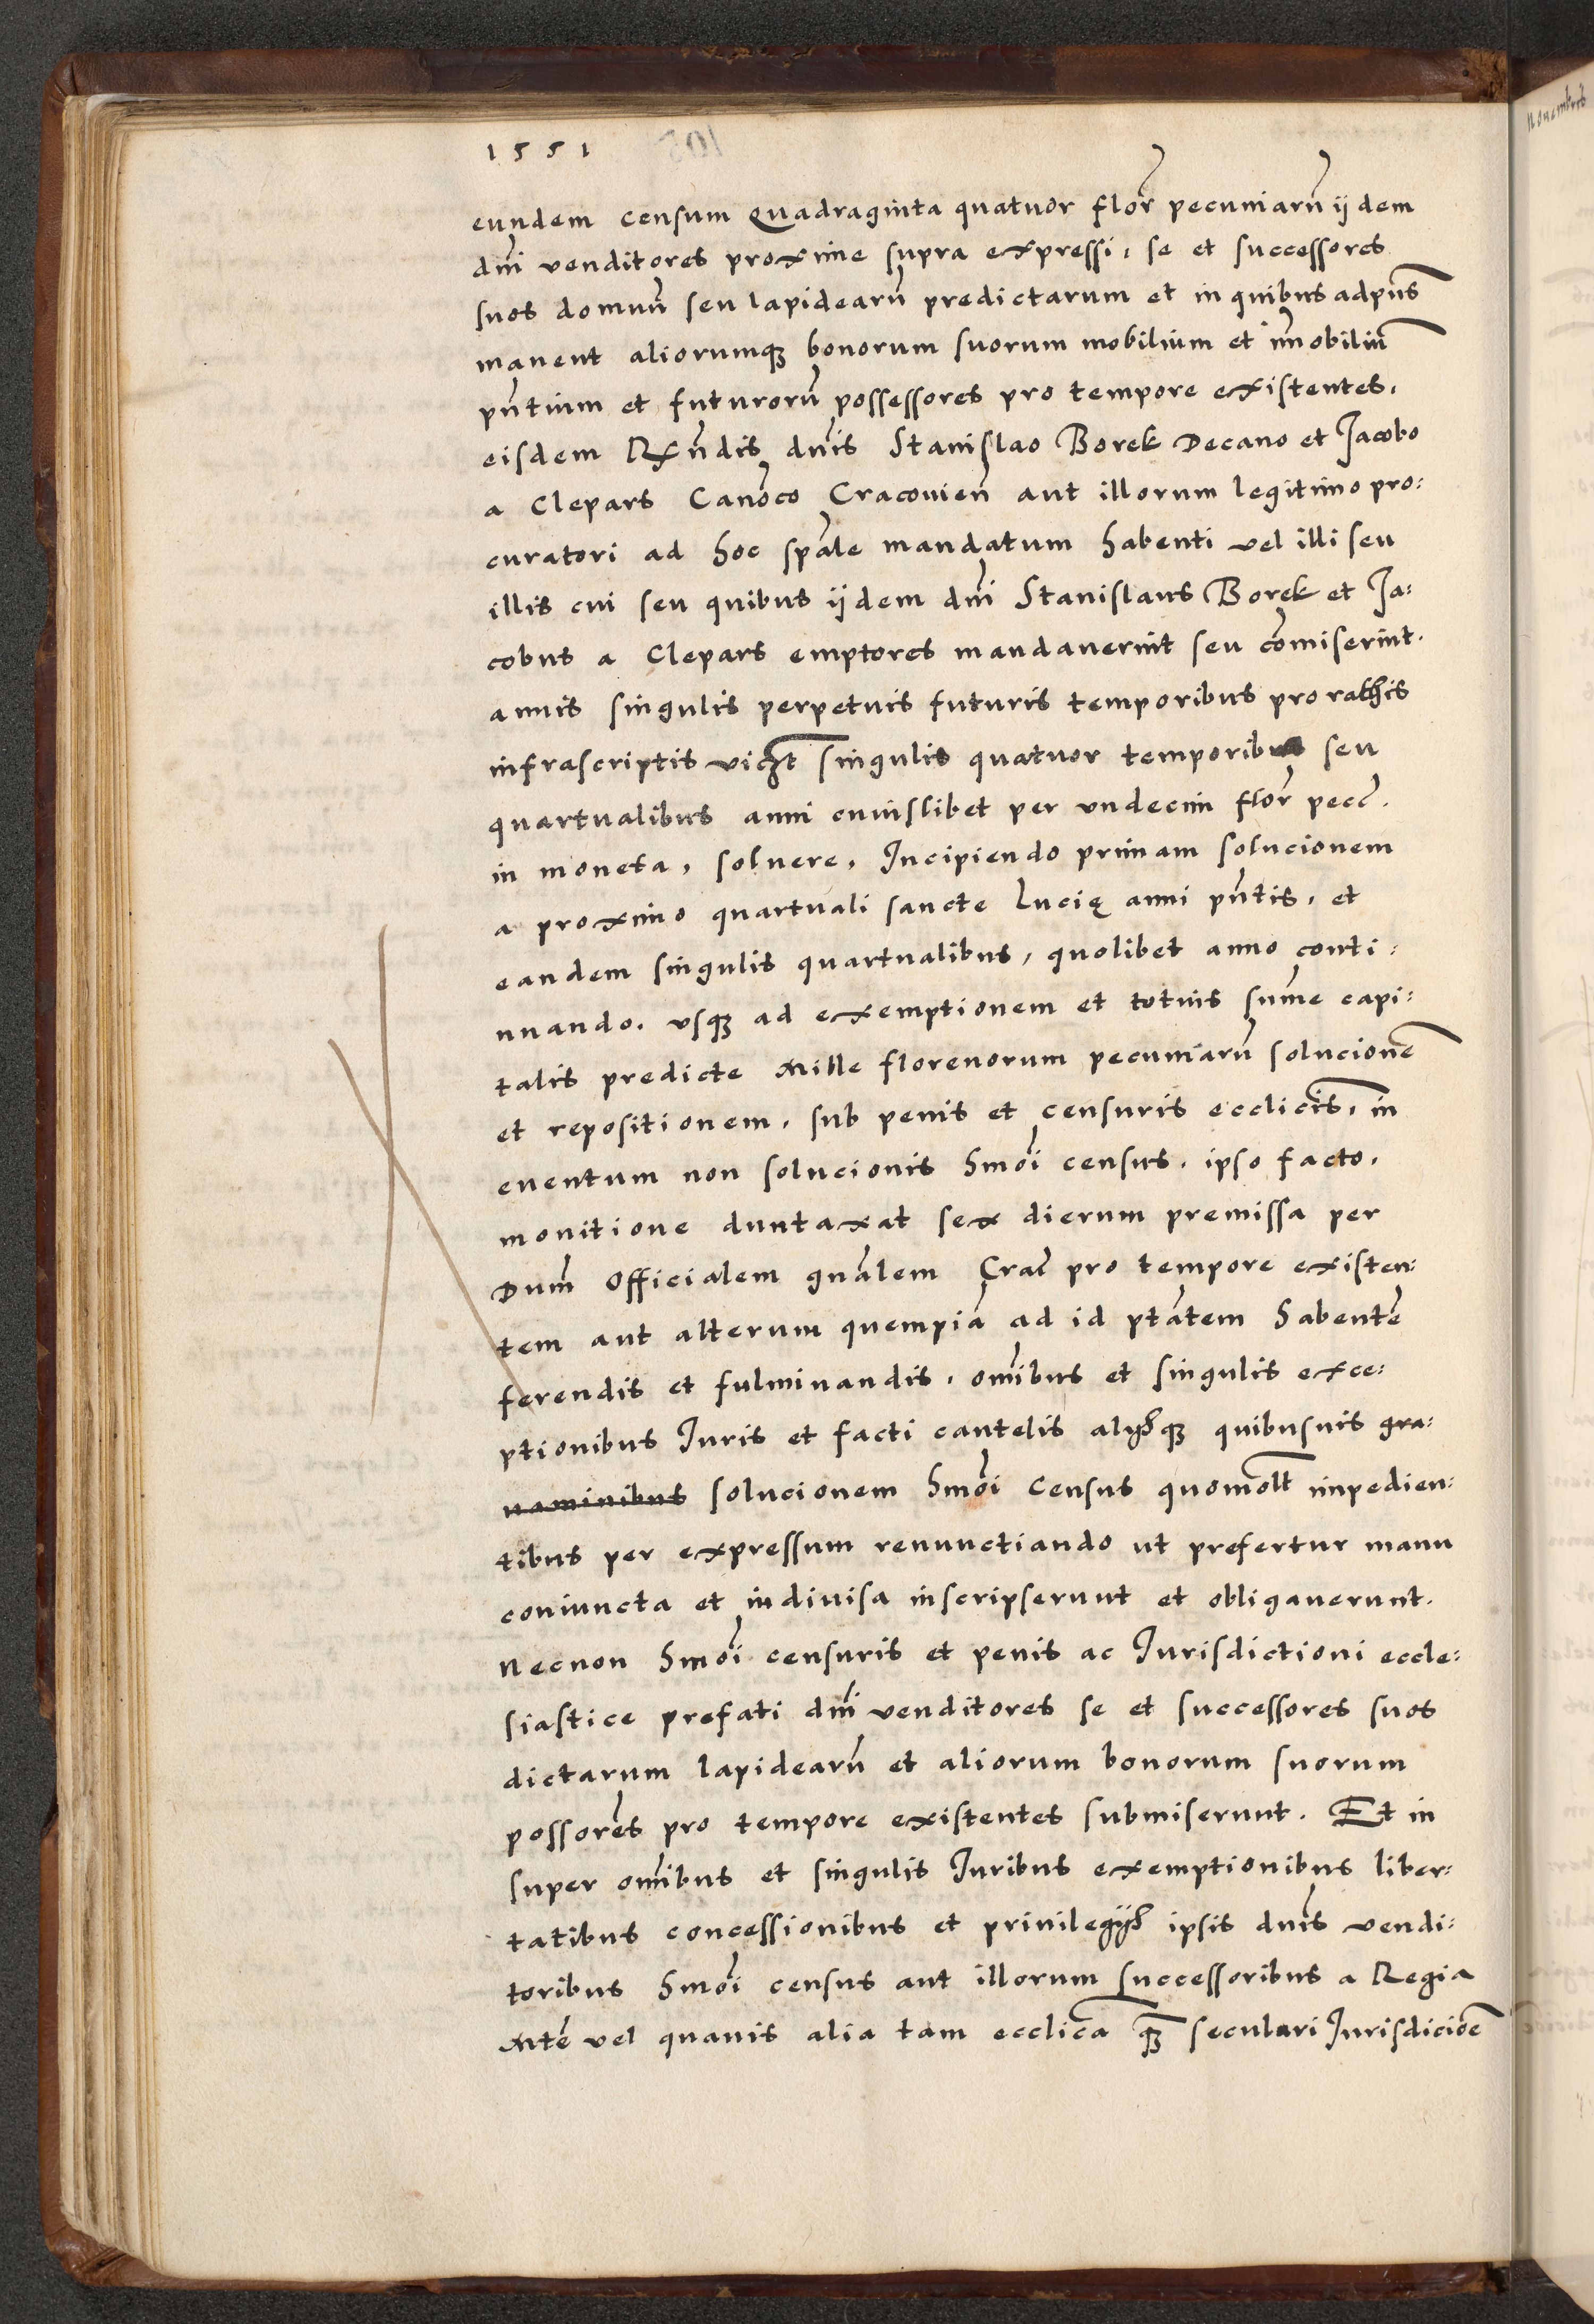 1551
eundem censum Quadraginta quatuor flor̄ pecuniarū ijdem
dn̄i venditores proxime supra expressi, se et successores
suos domuū seu lapidearū predictarum et in quibus ad pn̄s
manent aliorumqꝫ bonorum suorum mobilium et im̄obiliū
pn̄tium et futurorū possessores pro tempore existentes,
eisdem Rx̄ndis dn̄is Stanislao Borek Decano et Jacobo
a Clepars Canōco Cracouien̄ aut illorum legitimo pro:
curatori ad hoc spāle mandatum habenti vel illi seu
illis cui seu quibus ijdem dn̄i Stanislaus Borek et Ja:
cobus a Clepars emptores mandauerint seu com̄iserint.
annis singulis perpetuis futuris temporibus pro rathis
infrascriptis vicꝫt singulis quatuor temporibus seu
quartualibus anni cuiuslibet per undecim flor̄ pecc̄.
in moneta, soluere, Incipiendo primam solucionem
a proximo quartuali sancte Lucię anni pn̄tis, et
eandem singulis quartualibus, quolibet anno conti:
nuando. usqꝫ ad exemptionem et totius sum̄e capi:
talis predicte Mille florenorum pecuniarū solucionē
et repositionem, sub penis et censuris eccl̄icis, in
euentum non solucionis hmōi census, ipso facto,
monitione duntaxat sex dierum premissa per
Dnum̄ Officialem gnālem Crac̄ pro tempore existen:
tem aut alterum quempiā ad id ptātem habentē
ferendis et fulminandis, om̄ibus et singulis exce:
ptionibus Iuris et facti cautelis alijsqꝫ quibusuis gra:
uaminibus solucionem hmōi census quomōlt impedien:
tibus per expressum renunctiando ut prefertur manu
coniuncta et indiuisa inscripserunt et obligauerunt.
Necnon hmōi censuris et penis ac Jurisdictioni eccle:
siastice prefati dn̄i venditores se et successores suos
dictarum lapidearū et aliorum bonorum suorum
possorēs pro tempore existentes submiserunt. Et in
super om̄ibus et singulis Iuribus exemptionibus liber:
tatibus concessionibus et priuilegijs ipsis dn̄is vendi:
toribus hmōi census aut illorum successoribus a Regia
Mtē vel quauis alia tam eccl̄ica qꝫ̄ seculari Jurisdiciōe